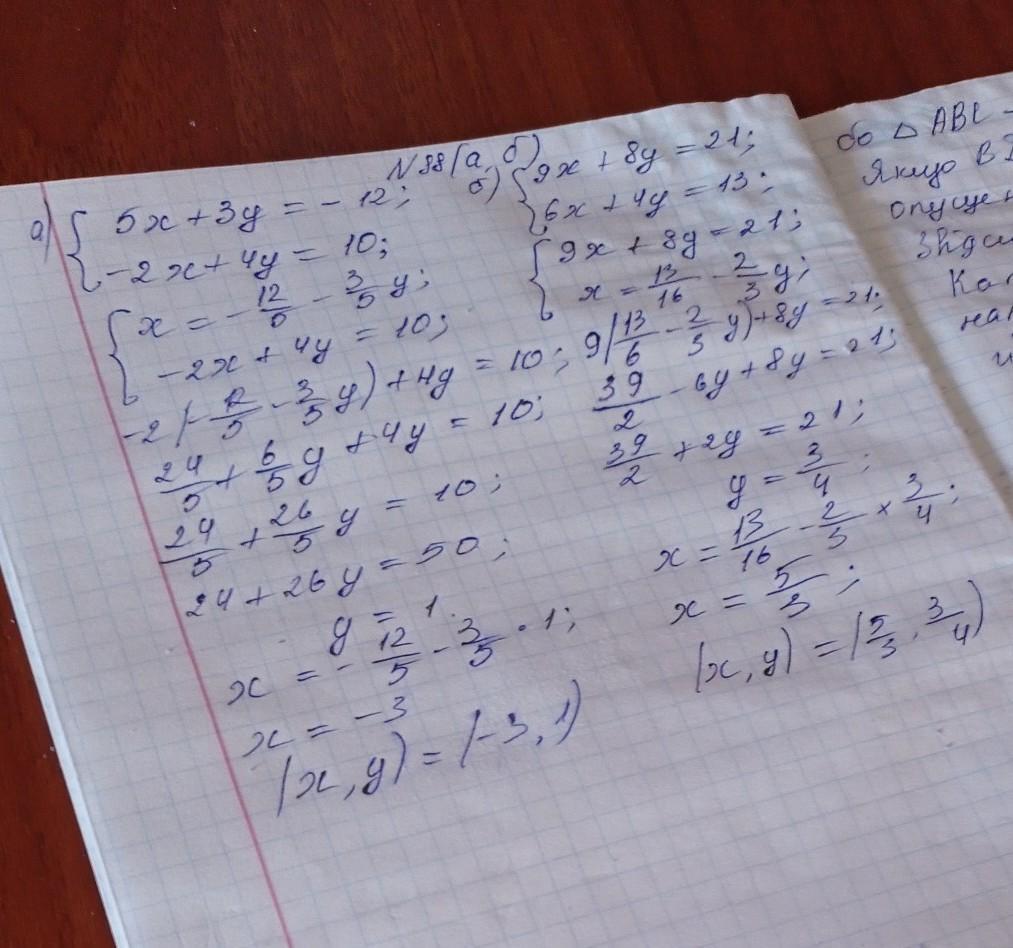 N 98(а, б)
а) { 5x + 3y = - 12;
-2x + 4y = 10;
{ x = - 12/5 - 3/5 y;
-2x + 4y = 10;
-2(-12/5 - 3/5 y) + 4y = 10;
24/5 + 6/5 y + 4y = 10;
24/5 + 26/5 y = 10;
24 + 26y = 50;
y = 1.
x = - 12/5 - 3/5 · 1;
x = -3
(x, y) = (-3, 1)
б) { 9x + 8y = 21;
6x + 4y = 13;
{ 9x + 8y = 21;
x = 13/16 - 2/3 y;
9(13/6 - 2/3 y) + 8y = 21;
39/2 - 6y + 8y = 21;
39/2 + 2y = 21;
y = 3/4;
x = 13/16 - 2/3 × 3/4;
x = 5/3;
(x, y) = (5/3, 3/4)
бо △ ABC -
Якщо